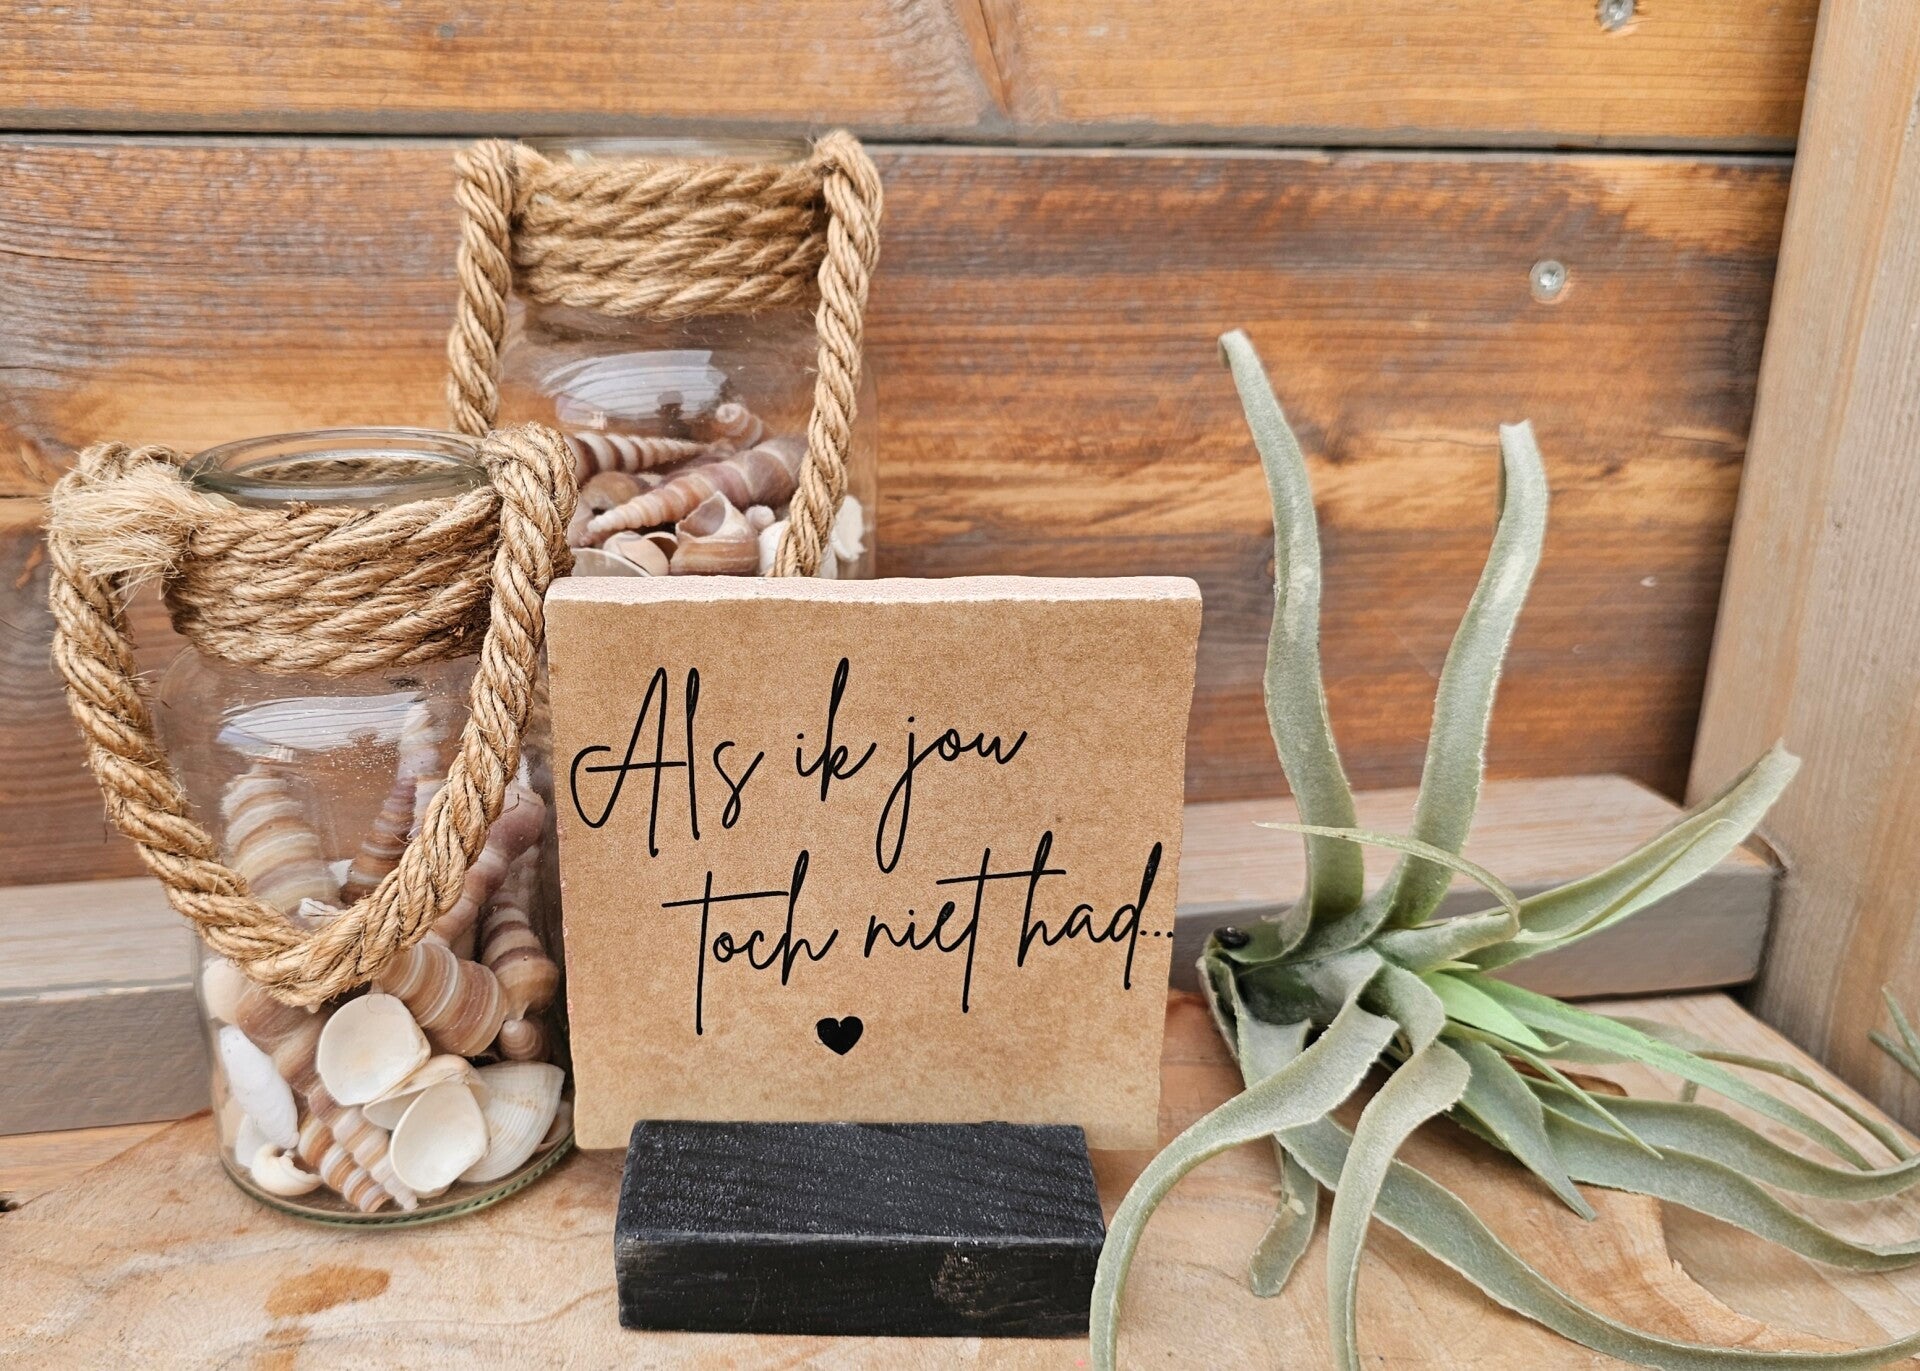 Als ik jou
toch niet had...